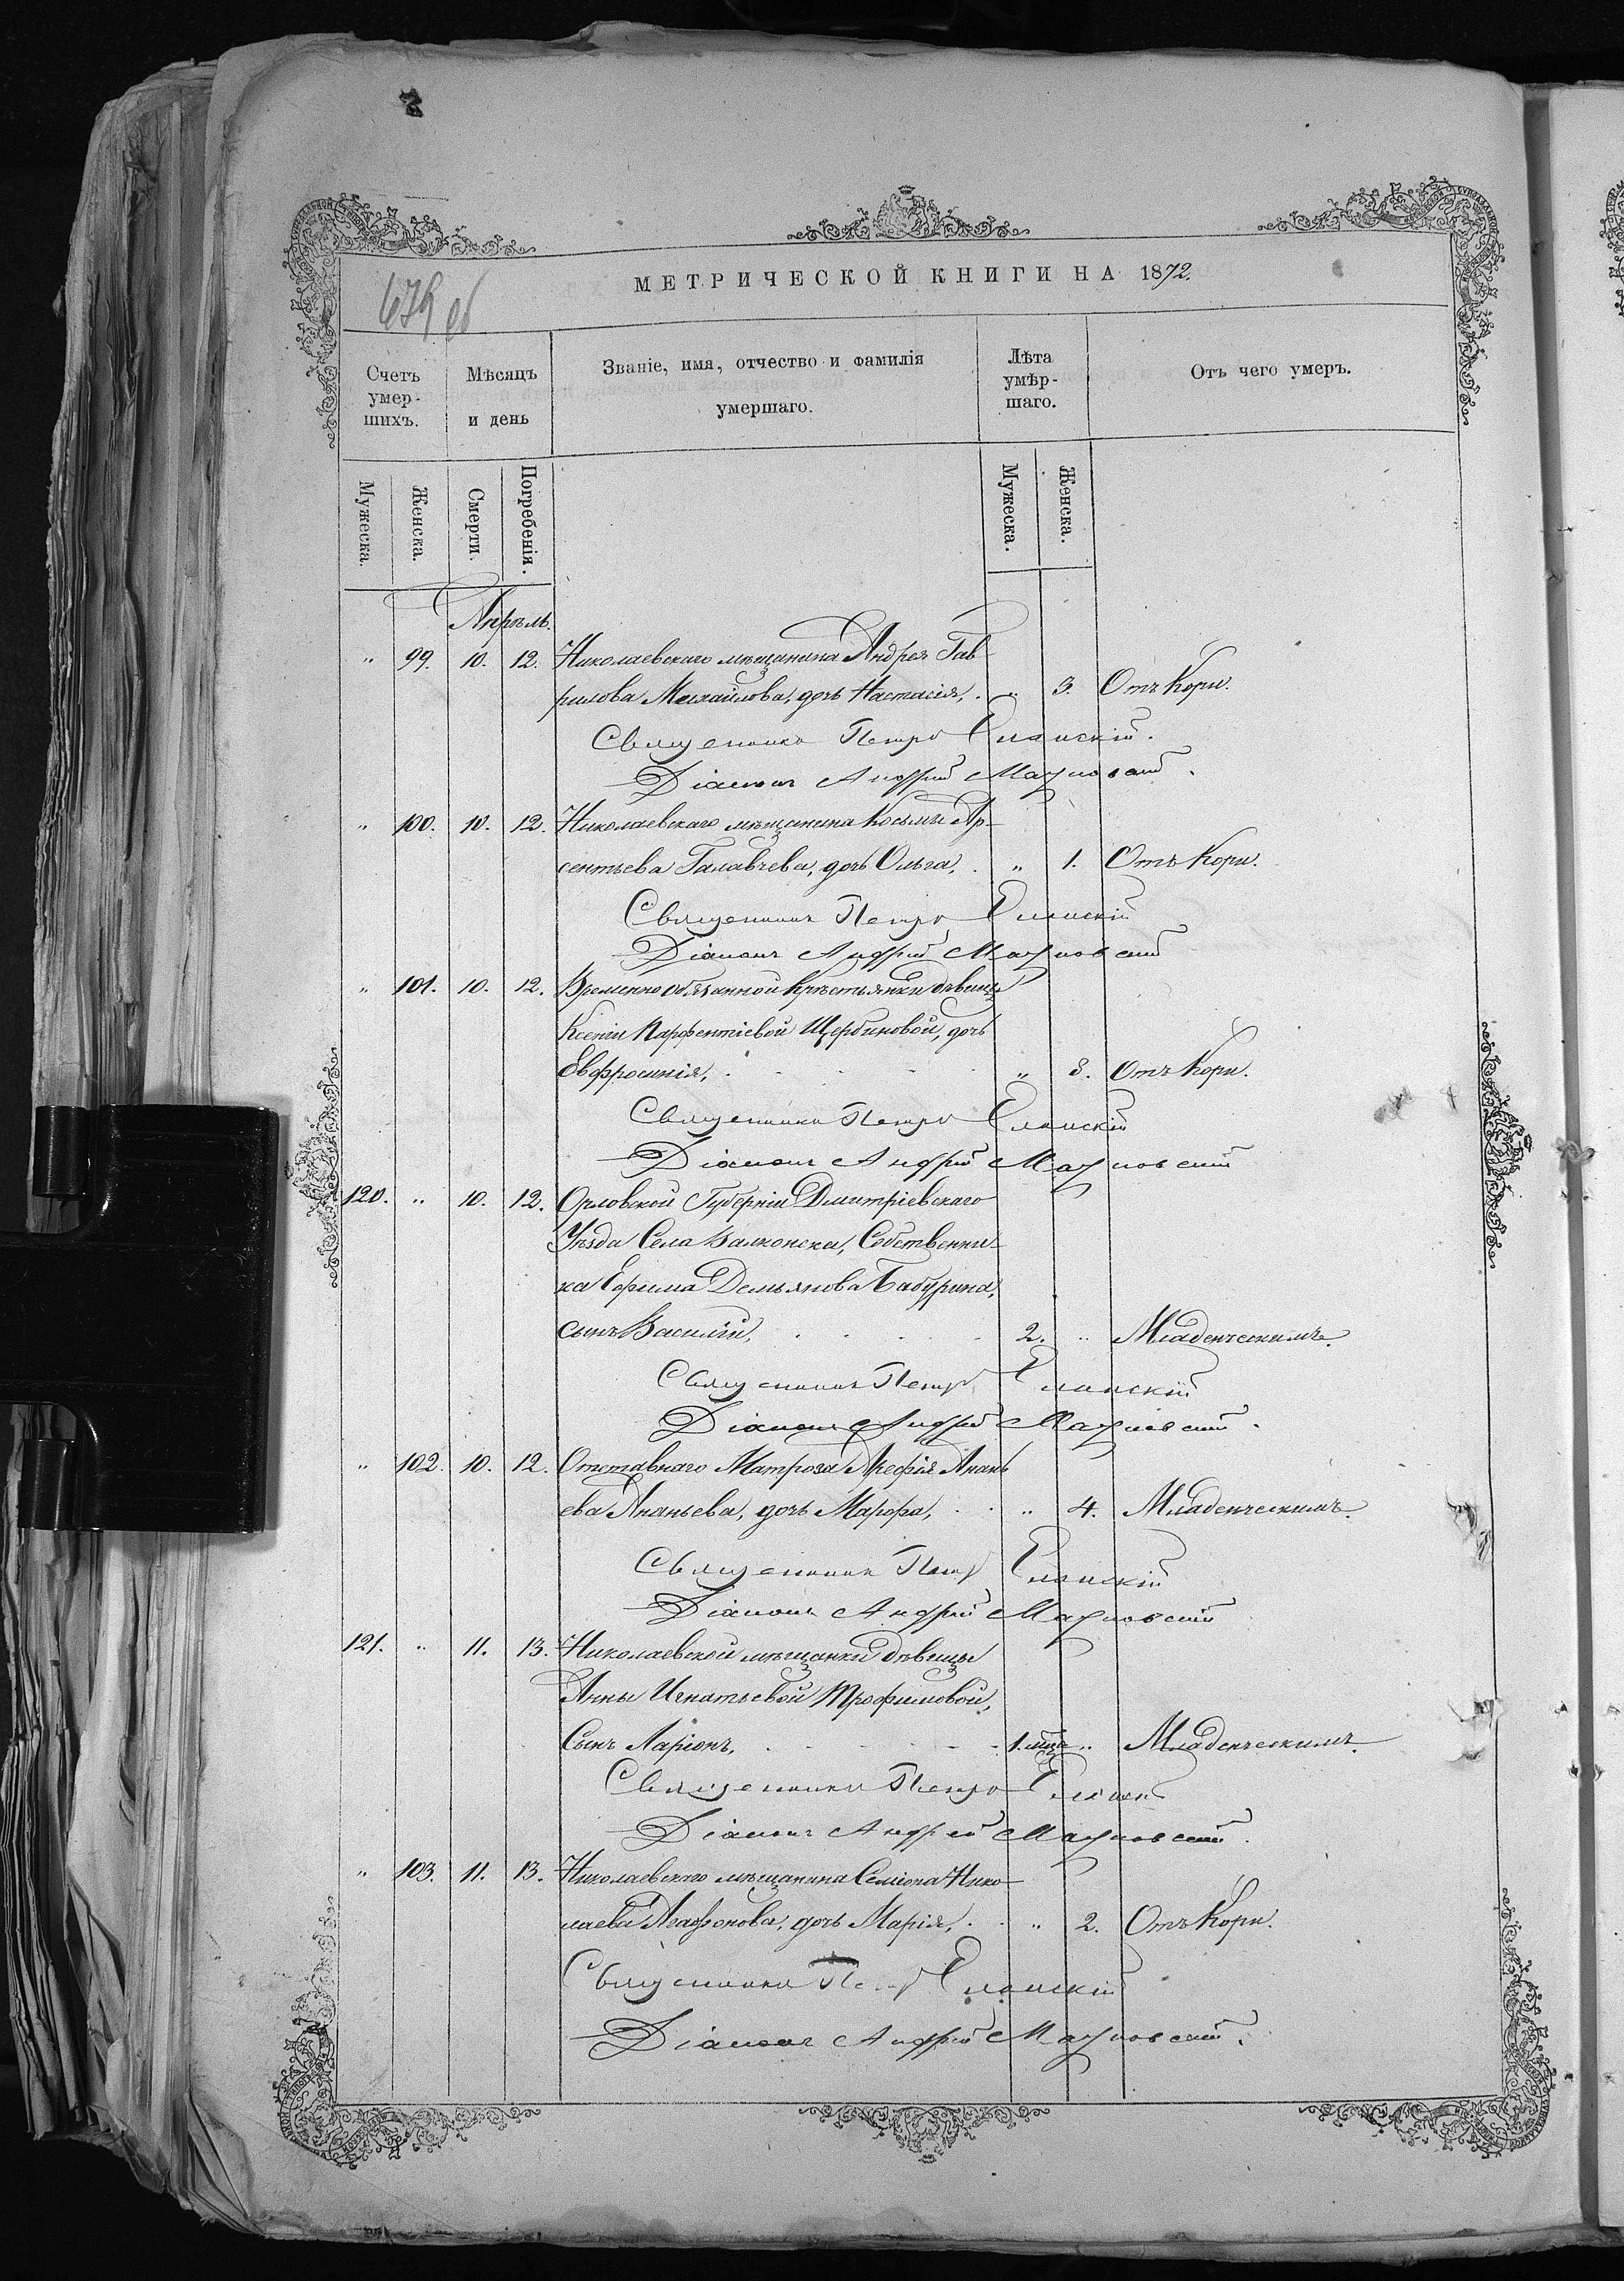 МЕТРИЧЕСКОЙ КНИГИ НА 1872.
679 об
Счетъ умер-шихъ.
Мѣсяцъ и день
Званіе, имя, отчество и фамилія умершаго.
Лѣта умѣр-шаго.
Отъ чего умеръ.
Мужеска. Женска. Смерти. Погребенія. Мужеска. Женска.
Апрѣль.
" 99. 10. 12. Николаевскаго мѣщанина Андрея Гав
рилова Михайлова, дочь Настасія, " 3. Отъ Кори.
Священникъ Петръ Еланскій.
Діаконъ Андрей
" 100. 10. 12. Николаевскаго мѣщанина Косьмы Ар-
сентьева Галавчева, дочь Ольга, " 1. Отъ Кори.
Священникъ Петръ Еланскій
Діаконъ Андрей
" 101. 10. 12. Временно обязанной Крестьянки дѣвицы
Ксеніи Парфентіевой Щербиковой, дочь
Евфросинія, " 3. Отъ Кори.
Священникъ Петръ Еланскій
Діаконъ Андрей
120. " 10. 12. Орловской Губерніи Дмитріевскаго
Уѣзда Села Валконска, Собственни-
ка Ефима Демьянова Бабурина,
сынъ Василій, 2. " Младенческимъ.
Священникъ Петръ Еланскій
Діаконъ Андрей
" 102. 10. 12. Отставнаго Матроза Арефія Анань
ева Ананьева, дочь Марфа, " 4. Младенческимъ.
Священникъ Петръ Еланскій
Діаконъ Андрей
121. " 11. 13. Николаевской мѣщанки дѣвицы
Анны Игнатьевой Трофимовой,
Сынъ Ларіонъ, 1. мца " Младенческимъ.
Священникъ Петръ Еланск
Діаконъ Андрей
" 103. 11. 13. Николаевскаго мѣщанина Семіона Нико-
лаева Агафонова, дочь Марія, " 2. Отъ Кори.
Священникъ Петръ Еланскій
Діаконъ Андрей